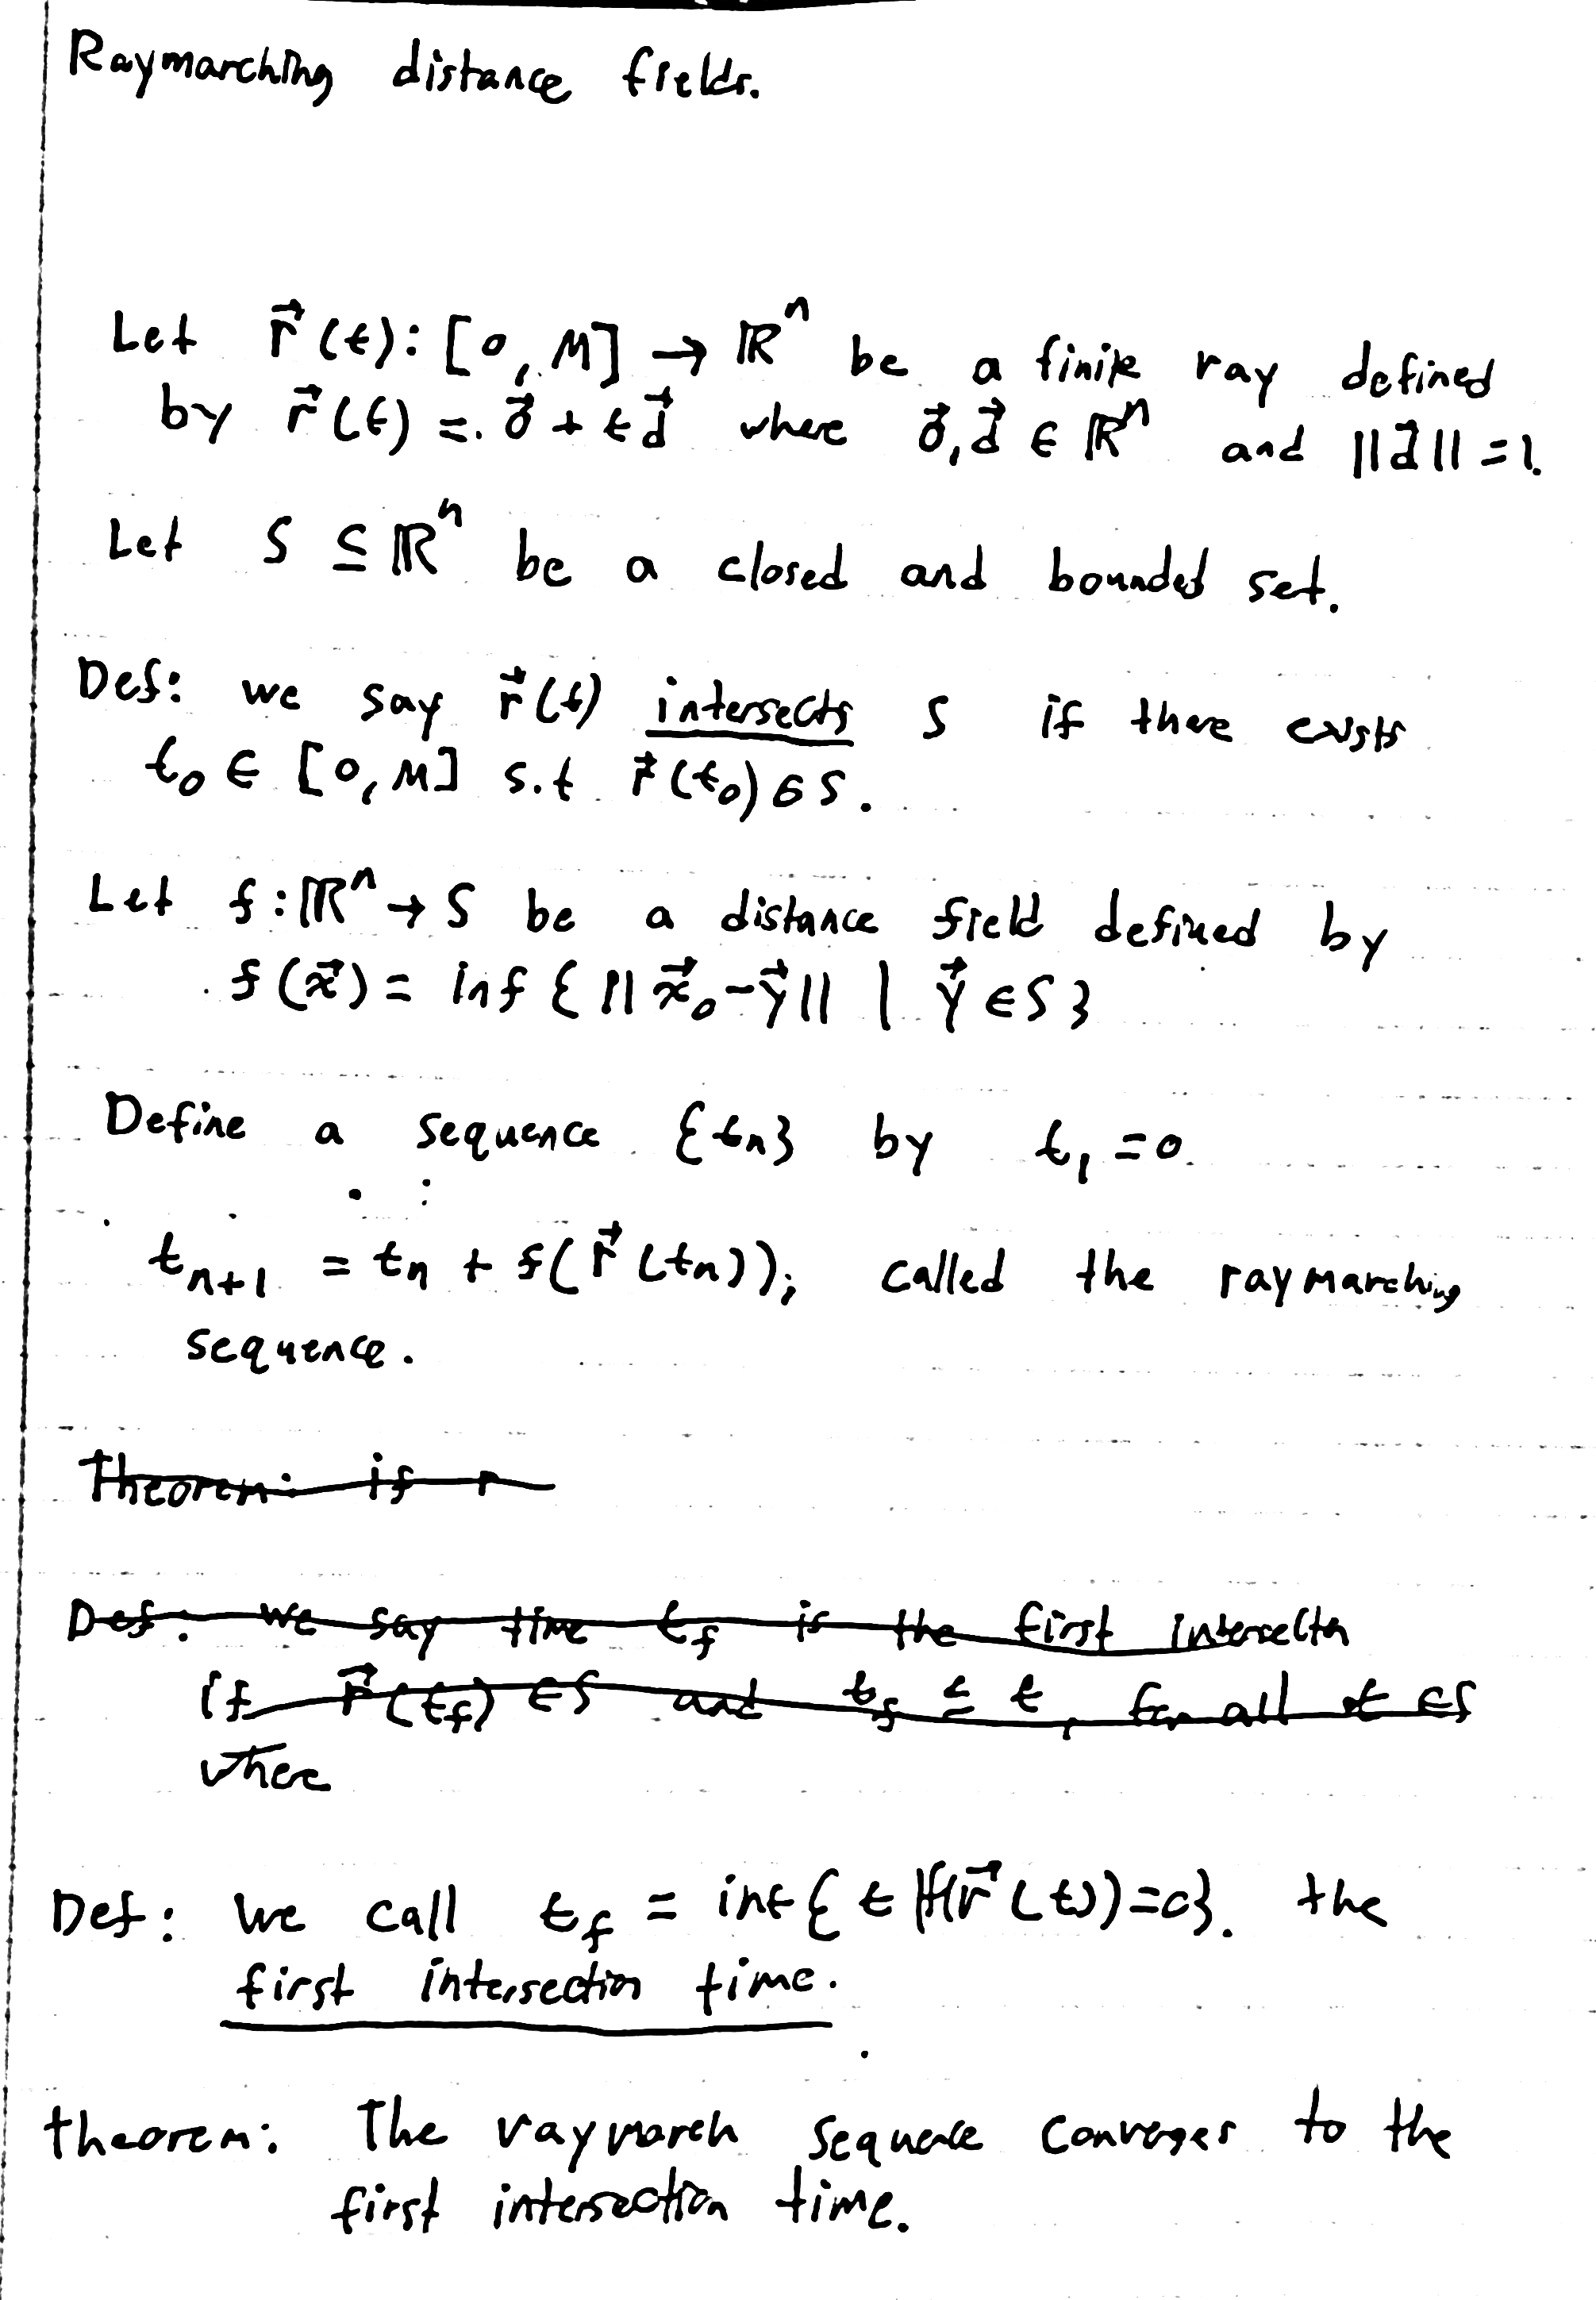 Raymarching distance fields.
Let r⃗(t): [0, M] → ℝⁿ be a finite ray defined
by r⃗(t) = o⃗ + td⃗ where o⃗, d⃗ ∈ ℝⁿ and ||d⃗|| = 1.
Let S ⊆ ℝⁿ be a closed and bounded set.
Def: we say r⃗(t) intersects S if there exists
t₀ ∈ [0, M] s.t r⃗(t₀) ∈ S.
Let f: ℝⁿ → S be a distance field defined by
f(x⃗) = inf { ||x⃗₀ - y⃗|| | y⃗ ∈ S }
Define a sequence {tₙ} by t₁ = 0.
tₙ₊₁ = tₙ + f(r⃗(tₙ)), called the raymarching
sequence.
Theorem: if r
Def: We say time t_f is the first intersection
if r⃗(t_f) ∈ S and t_f ≤ t, for all t ∈ S
where
Def: We call t_f = inf { t | f(r⃗(t)) = 0}. the
first intersection time.
theorem: The raymarch sequence converges to the
first intersection time.